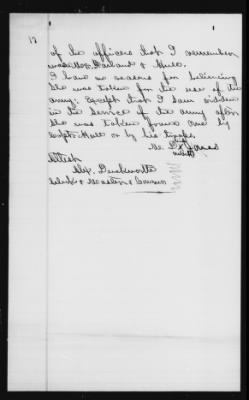 of the officers that I remember
was Maj. Garland & Hull.
I have no reasons for believing
she was taken for the use of the
army; except that I saw ridden
in the service of the army after
she was taken from me by
Capt. Hull or by his troops.
Jones
Attest
Alex. Duckworth
Clerk & Master & Commr